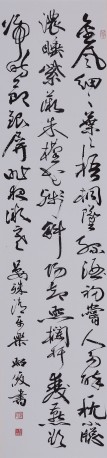 金風細〻葉〻梧桐墜綠酒初嘗人易醉一枕小窗
濃睡紫薇朱槿花殘斜陽却照闌干雙燕欲
歸時節銀屏昨夜微寒 晏殊清平樂 書